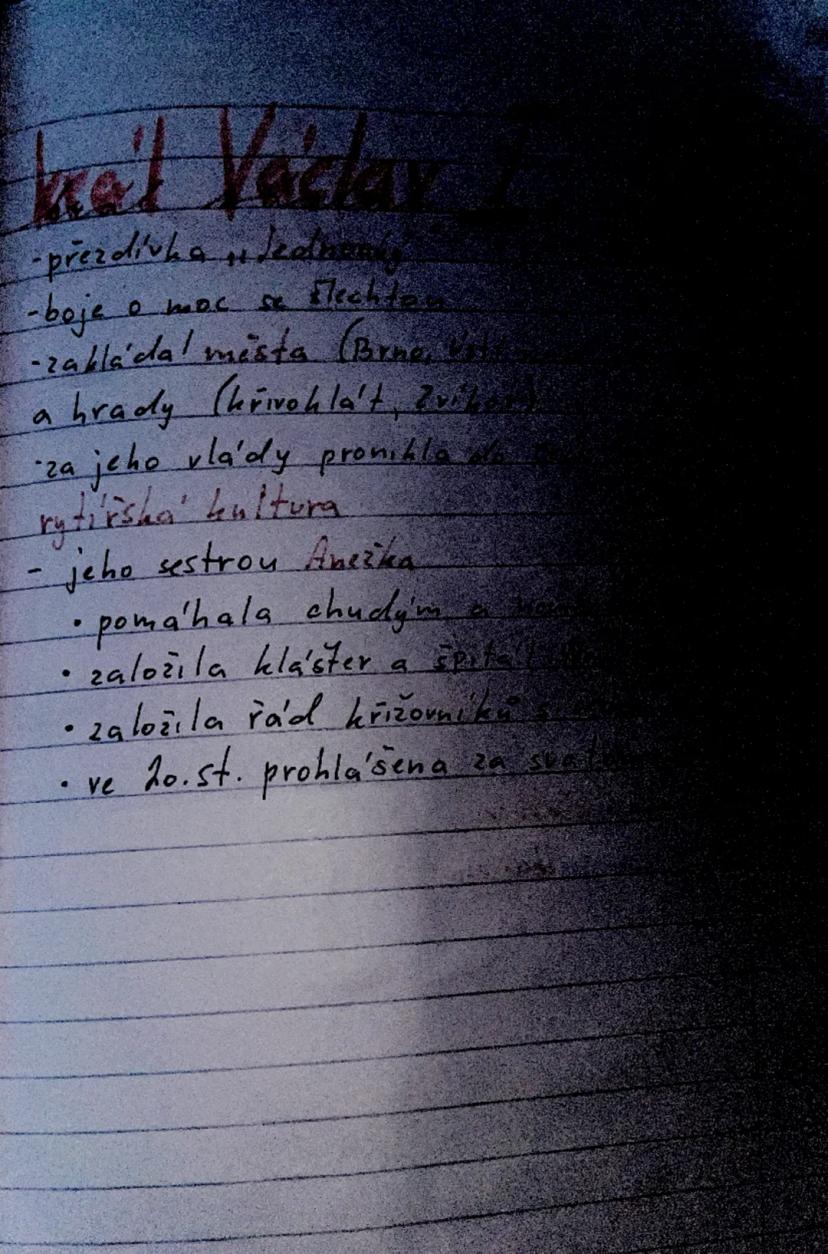 král Václav I.
- přezdívka „Jednooký"
- boje o moc se šlechtou
- zakládal města (Brno,
a hrady (křivoklát, Zvíkov)
- za jeho vlády pronikla do
rytířská kultura
- jeho sestrou Anežka
• pomáhala chudým a
• založila klášter a špitál
• založila řád křižovníků s
• ve 20. st. prohlášena za svatou